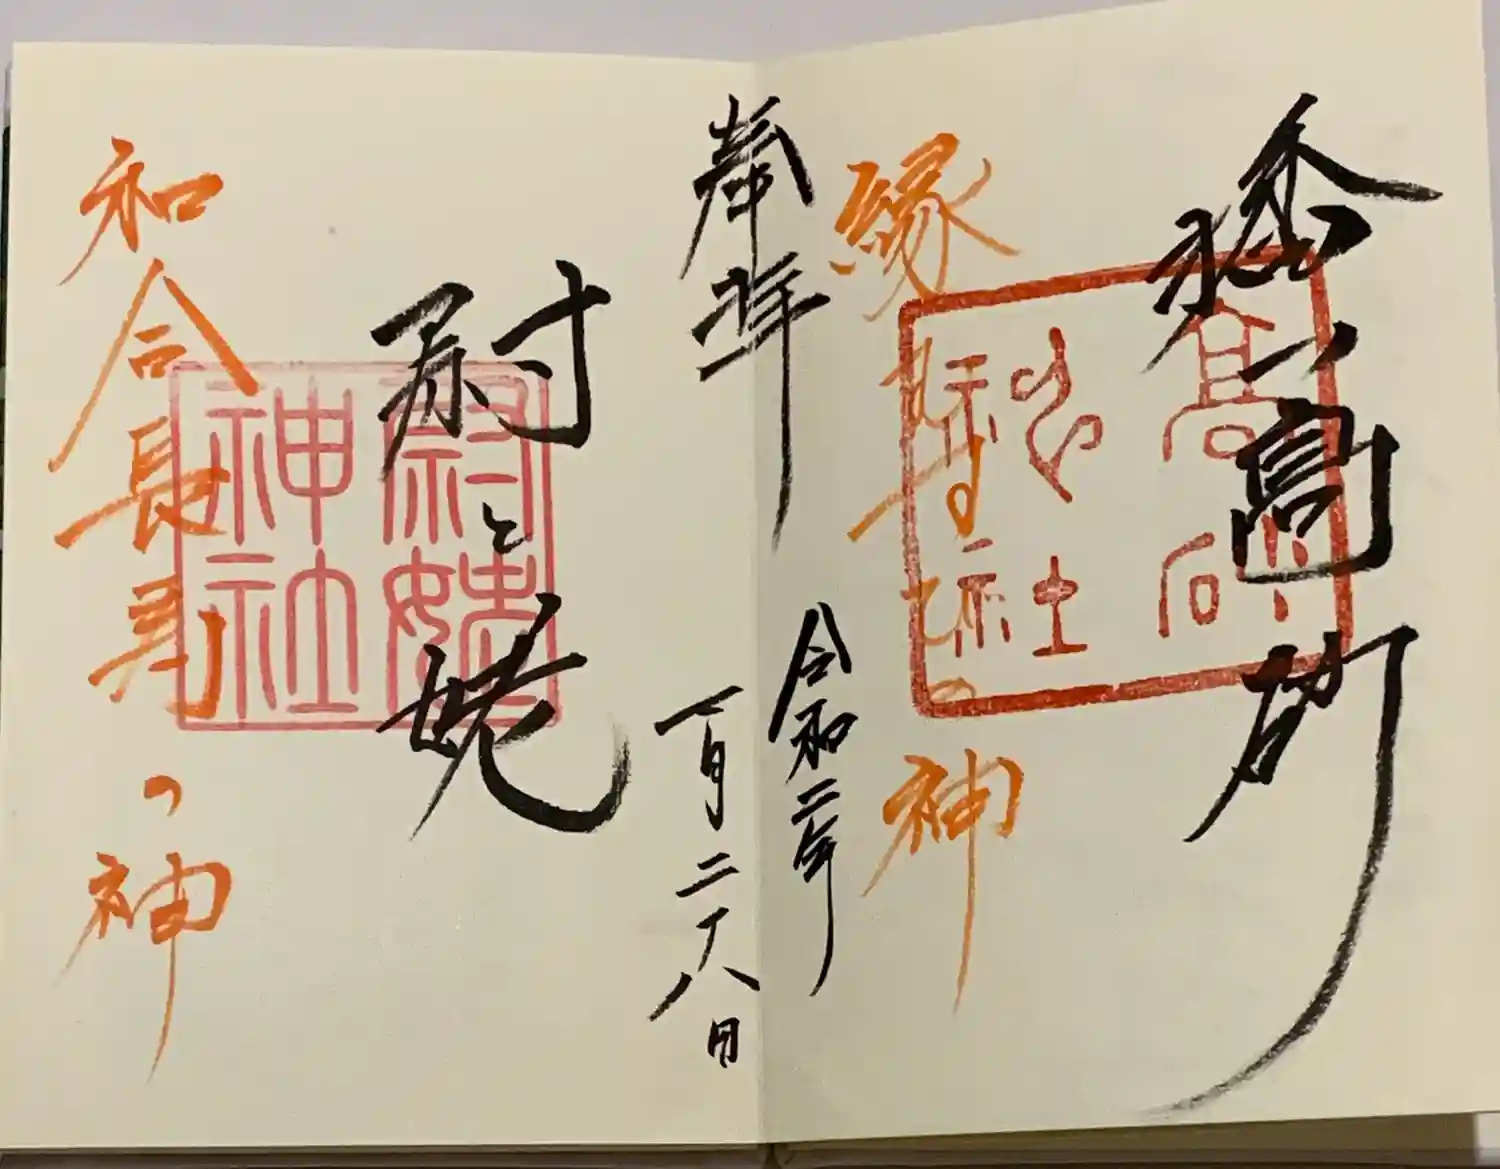 高砂
縁結びの神
奉拝
令和二年
一月二十八日
尉と姥
尉姥神社
和合長寿の神